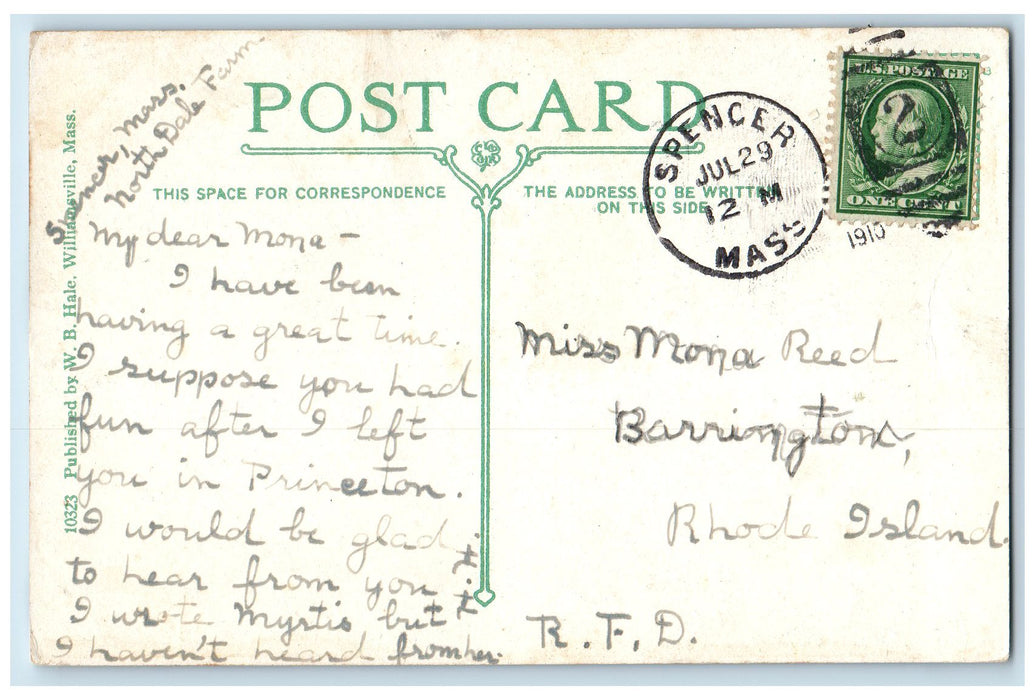 Spencer, Mass.
North Dale Farm.
POST CARD
THIS SPACE FOR CORRESPONDENCE
THE ADDRESS TO BE WRITTEN
ON THIS SIDE
SPENCER
JUL 29
12 M
MASS
1910
U.S. POSTAGE
2
ONE CENT
10323 Published by W. B. Hale, Williamsville, Mass.
My dear Mona –
I have been
having a great time.
I suppose you had
fun after I left
you in Princeton.
I would be glad
to hear from you
I wrote Myrtis but
I haven't heard from her.
Miss Mona Reed
Barrington,
Rhode Island.
R. F. D.